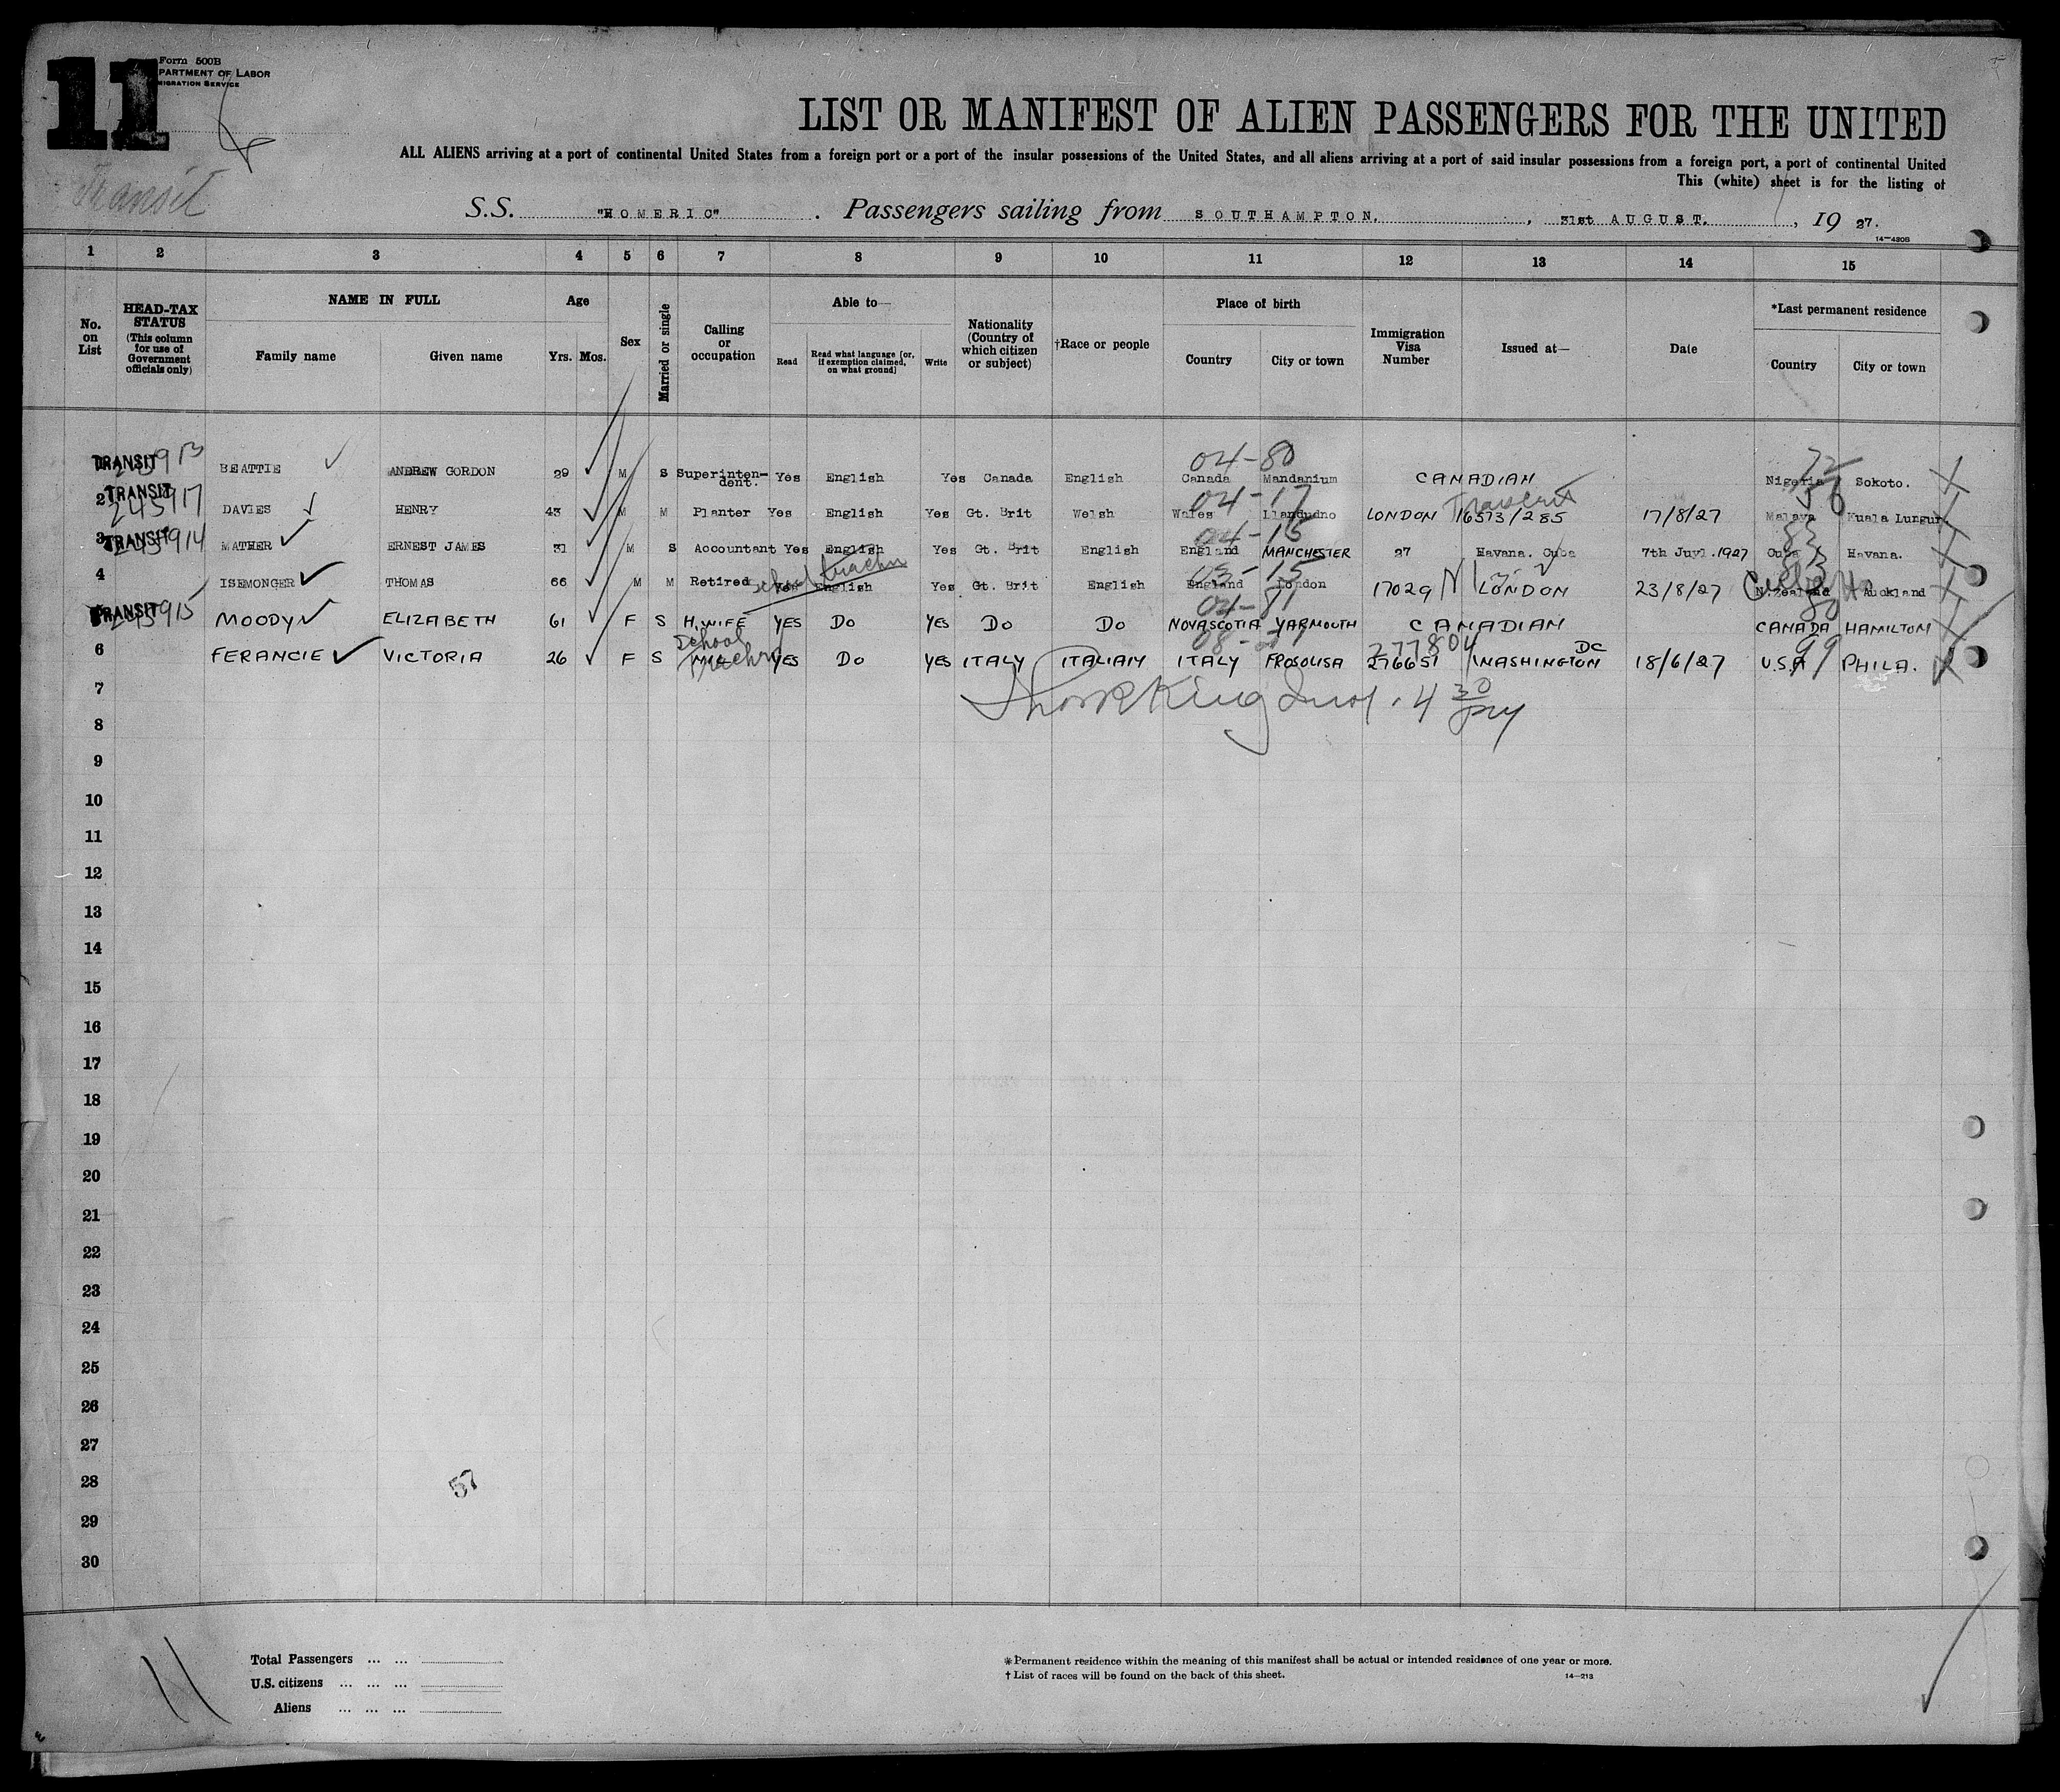 11
Form 500B
PARTMENT OF LABOR
MIGRATION SERVICE
Transit
LIST OR MANIFEST OF ALIEN PASSENGERS FOR THE UNITED
ALL ALIENS arriving at a port of continental United States from a foreign port or a port of the insular possessions of the United States, and all aliens arriving at a port of said insular possessions from a foreign port, a port of continental United
This (white) sheet is for the listing of
S.S. "HOMERIC". Passengers sailing from SOUTHAMPTON, 31st AUGUST, 19 27.
14—430B
1 2 3 4 5 6 7 8 9 10 11 12 13 14 15
No. on List
HEAD-TAX STATUS (This column for use of Government officials only)
NAME IN FULL
Family name Given name
Age
Yrs. Mos.
Sex
Married or single
Calling or occupation
Able to—
Read Read what language [or, if exemption claimed, on what ground] Write
Nationality (Country of which citizen or subject)
†Race or people
Place of birth
Country City or town
Immigration Visa Number
Issued at—
Date
*Last permanent residence
Country City or town
TRANSIT BEATTIE ANDREW GORDON 29 M S Superinten-dent. Yes English Yes Canada English 04-80 Canada Mandanium CANADIAN 72 Nigeria Sokoto.
2 TRANSIT 245917 DAVIES HENRY 43 M M Planter Yes English Yes Gt. Brit Welsh 04-17 Wales Llandudno LONDON 16573/285 17/8/27 56 Malaya Kuala Lungur
3 TRANSIT 245914 MATHER ERNEST JAMES 31 M S Accountant Yes English Yes Gt. Brit English 04-15 England MANCHESTER 27 Havana. Cuba 7th Juyl.1927 83 Cuba Havana.
4 ISEMONGER THOMAS 66 M M Retired school teacher Yes English Yes Gt. Brit English 03-15 England London 17029 LONDON 23/8/27 N.Zealand Auckland
TRANSIT 245915 MOODY ELIZABETH 61 F S H.WIFE YES DO YES DO DO 04-81 NOVASCOTIA YARMOUTH CANADIAN 80 CANADA HAMILTON
6 FERANCIE VICTORIA 26 F S School Teacher YES DO YES ITALY ITALIAN ITALY FROSOLISA 277804 276651 WASHINGTON DC 18/6/27 99 U.S.A PHILA.
7
8
9
10
11
12
13
14
15
16
17
18
19
20
21
22
23
24
25
26
27
28
29
30
57
11
Total Passengers ... ...
U.S. citizens ... ... ...
Aliens ... ... ...
*Permanent residence within the meaning of this manifest shall be actual or intended residence of one year or more.
†List of races will be found on the back of this sheet. 14—213